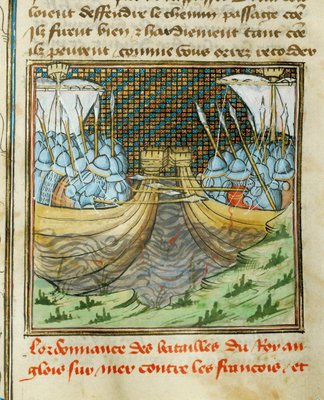 loient deffendre le chemin passage coē
ilz furent bien & hardiement tant coē
ilz peurent / comme vous orrez recorder
Lordonnance des batailles du Roy an
glois sur mer contre les francois / et